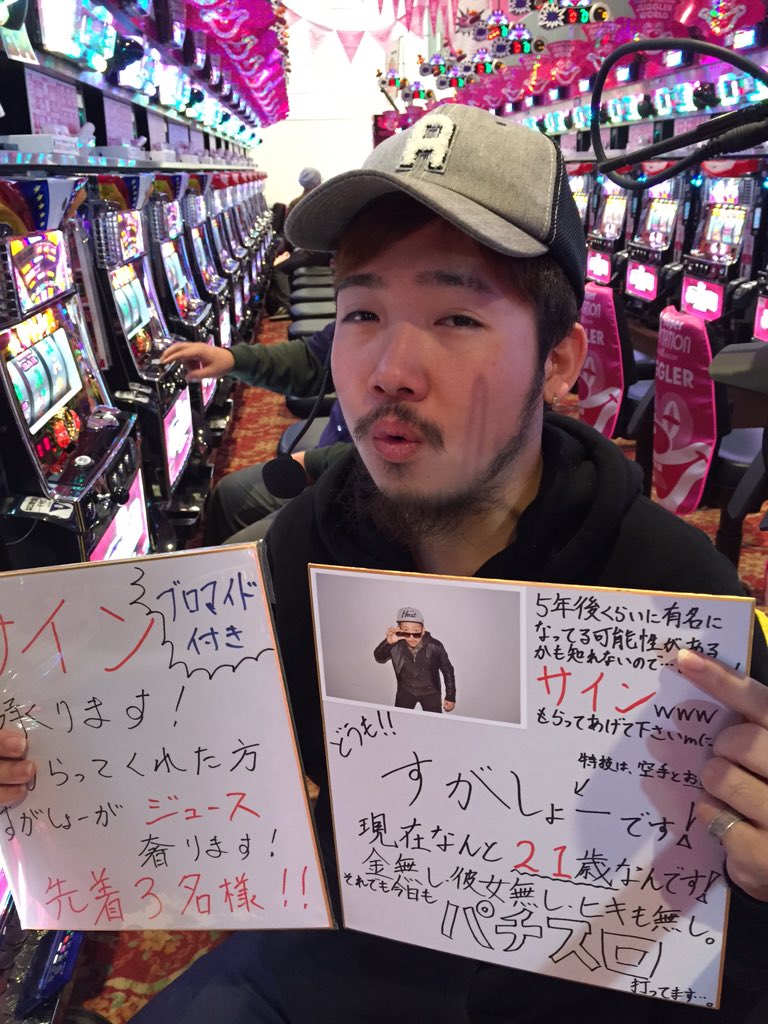 JUGGLER
WORLD
A
サイン
ブロマイド
付き
承ります!
らってくれた方
すがしょーが ジュース
奢ります!
先着3名様!!
Heat
5年後くらいに有名に
なってる可能性がある
かも知れないので…
サインwww
もらってあげて下さいm(
どうも!!
特技は、空手とお
すがしょーです!
現在なんと21歳なんです!
金無し、彼女無し、ヒキも無し。
それでも今日も
パチスロ
打ってます…。
GGLER